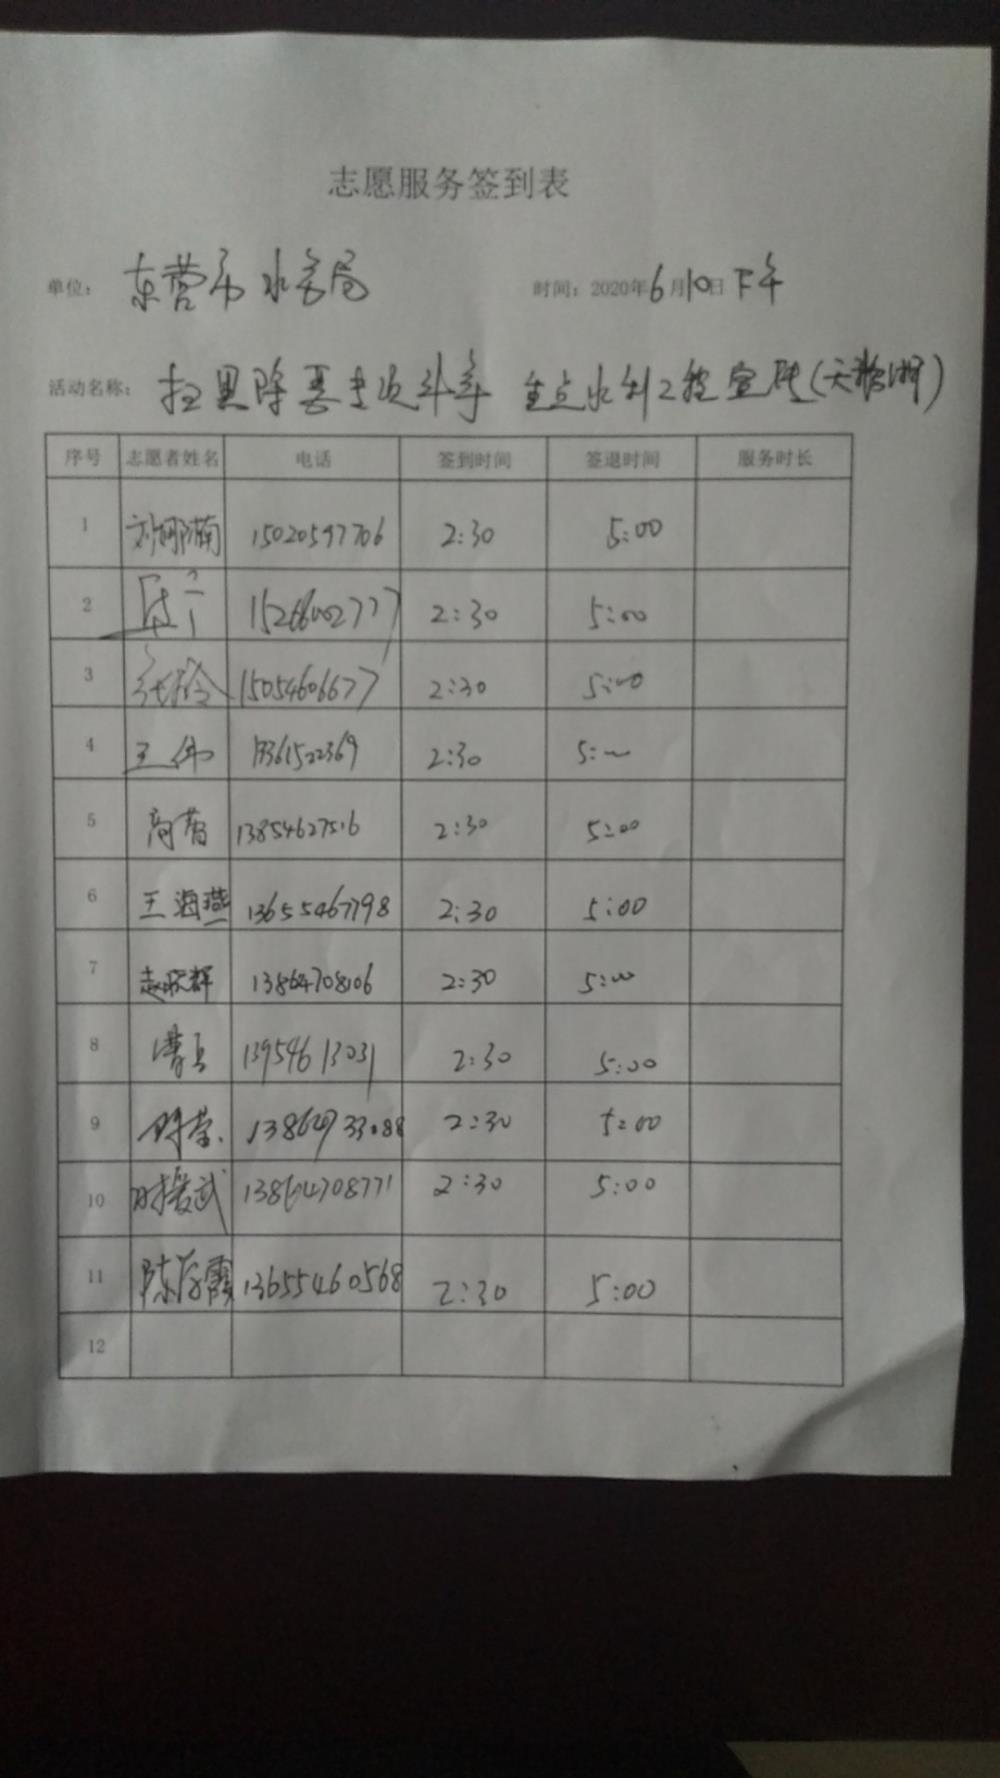 志愿服务签到表
单位： 东营市水务局 时间：2020年6月10日下午
活动名称： 扫黑除恶专项斗争 重点水利工程宣传(天鹅湖)
序号 志愿者姓名 电话 签到时间 签退时间 服务时长
1 刘娜楠 15020597706 2:30 5:00
2 2:30 5:00
3 15054606677 2:30 5:00
4 王伟 2:30 5:00
5 13854627516 2:30 5:00
6 王海燕 13655467798 2:30 5:00
7 赵晓辉 13864708106 2:30 5:00
8 13954613031 2:30 5:00
9 13864733088 2:30 5:00
10 13864708771 2:30 5:00
11 陈彦霞 13655460568 2:30 5:00
12